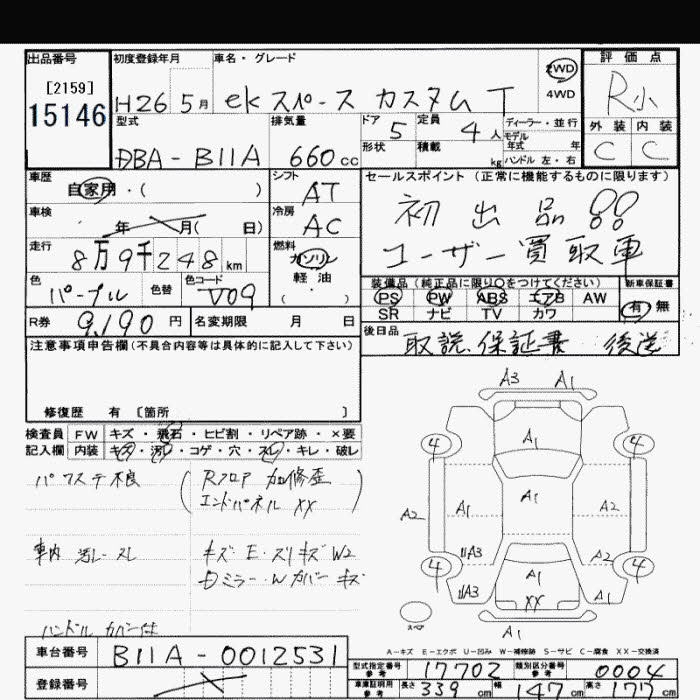 出品番号
[2159]
15146
初度登録年月
H26 5月
車名・グレード
ekスペース カスタム T
2WD
4WD
評価点
R小
外装 内装
C C
型式
DBA-B11A
排気量
660cc
ドア
5
定員
4人
形状
積載
kg
ディーラー・並行
モデル
年式 年
ハンドル 左・右
車歴
自家用・( )
シフト
AT
車検
年 月( 日)
冷房
AC
走行
8万9千248km
燃料
ガソリン
軽油
( )
色
パープル
色替
色コード
V09
R券 9,190円
名変期限 月 日
セールスポイント (正常に機能するものに限ります)
初出品!!
ユーザー買取車
装備品(純正品に限り○をつけてください)
PS PW ABS エアB AW
SR ナビ TV カワ
新車保証書
有 無
後日品
取説、保証書 後送
注意事項申告欄(不具合内容等は具体的に記入して下さい)
修復歴 有 〔箇所 〕
検査員
記入欄
FW キズ・飛石・ヒビ割・リペア跡・×要
内装 キズ・汚れ・コゲ・穴・スレ・キレ・破レ
パワステ不良
Rフロア 加修歪
エンドパネル XX
車内 汚レ スレ
キズ E・スリキズ W2
ミラー・W カバー キズ
ハンドル カバー付
A3 A1
4 A1 4
A2 A1 A1 A2
A3 A2
4 A1 4
A3 XX
A1
スペア
A-キズ E-エクボ U-凹み W-補修跡 S-サビ C-腐食 XX-交換済
車台番号 B11A-0012531
登録番号
型式指定番号
参考
17702
類別区分番号
参考
0004
車庫証明用
参考
長さ 339cm 幅 147cm 高さ 177cm